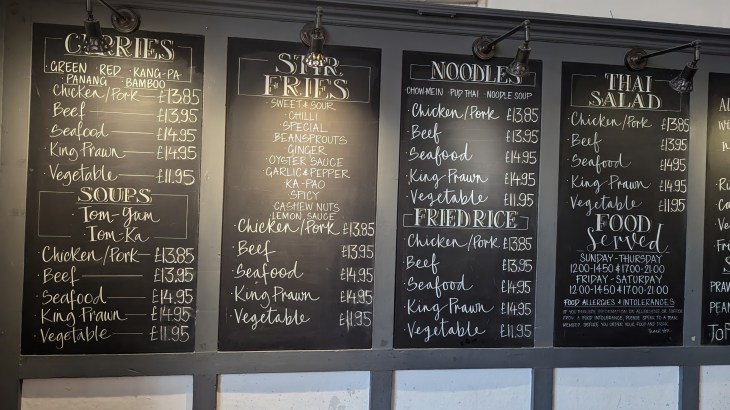 CURRIES
· GREEN · RED · KANG-PA
· PANANG · BAMBOO
Chicken/Pork — £13.85
Beef — £13.95
Seafood — £14.95
King Prawn — £14.95
Vegetable — £11.95
SOUPS
· Tom-Yum
Tom-Ka
· Chicken/Pork — £13.85
· Beef — £13.95
· Seafood — £14.95
· King Prawn — £14.95
· Vegetable — £11.95
STIR
FRIES
· SWEET & SOUR
· CHILLI
· SPECIAL
· BEANSPROUTS
· GINGER
· OYSTER SAUCE
· GARLIC & PEPPER
· KA-PAO
· SPICY
· CASHEW NUTS
· LEMON SAUCE
· Chicken/Pork £13.85
· Beef £13.95
· Seafood £14.95
· King Prawn £14.95
· Vegetable £11.95
NOODLES
· CHOW-MEIN · PUD THAI · NOODLE SOUP
· Chicken/Pork £13.85
· Beef £13.95
· Seafood £14.95
· King Prawn £14.95
· Vegetable £11.95
FRIED RICE
· Chicken/Pork £13.85
· Beef £13.95
· Seafood £14.95
· King Prawn £14.95
· Vegetable £11.95
THAI
SALAD
· Chicken/Pork £13.85
· Beef £13.95
· Seafood £14.95
· King Prawn £14.95
· Vegetable £11.95
FOOD
Served
SUNDAY - THURSDAY
12:00-14:50 & 17:00-21:00
FRIDAY - SATURDAY
12:00-14:50 & 17:00-21:00
FOOD ALLERGIES & INTOLERANCES
IF YOU REQUIRE INFORMATION ON ALLERGENS, OR SUFFER
FROM A FOOD INTOLERANCE, PLEASE SPEAK TO A TEAM
MEMBER BEFORE YOU ORDER YOUR FOOD AND DRINK.
Thank You
PRAW
PEAN